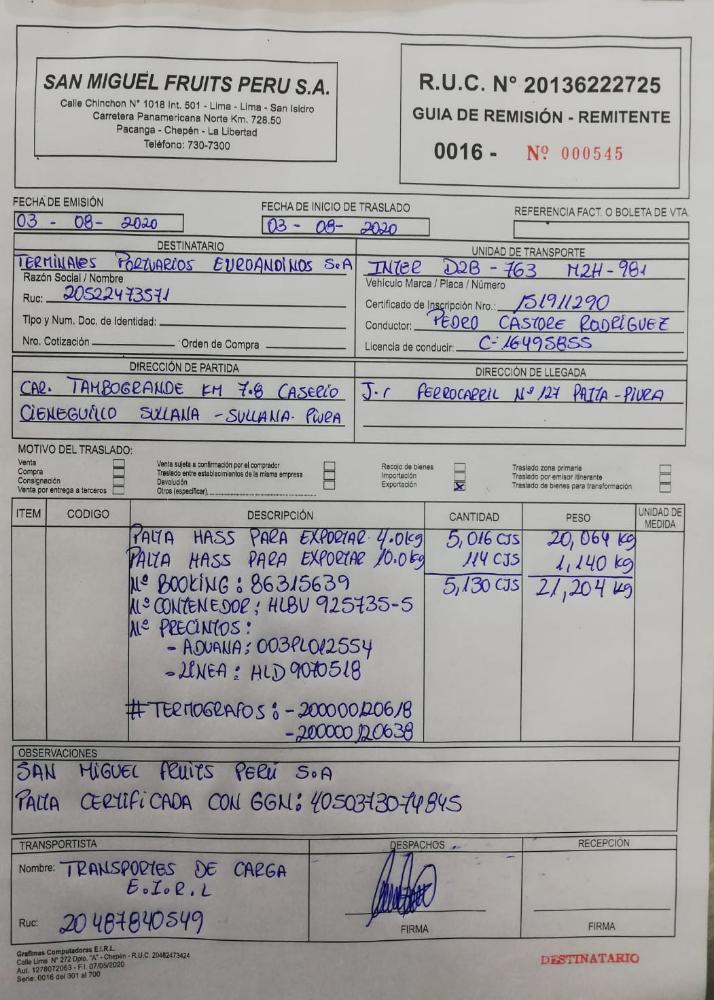 SAN MIGUEL FRUITS PERU S.A.
Calle Chinchon N° 1018 Int. 501 - Lima - Lima - San Isidro
Carretera Panamericana Norte Km. 728.50
Pacanga - Chepén - La Libertad
Teléfono: 730-7300
R.U.C. N° 20136222725
GUIA DE REMISIÓN - REMITENTE
0016 - Nº 000545
FECHA DE EMISIÓN
03 - 08 - 2020
FECHA DE INICIO DE TRASLADO
03 - 08 - 2020
REFERENCIA FACT. O BOLETA DE VTA.
DESTINATARIO
TERMINALES PORTUARIOS EUROANDINOS S.A
Razón Social / Nombre
Ruc: 20522473571
Tipo y Num. Doc. de Identidad:
Nro. Cotización Orden de Compra
UNIDAD DE TRANSPORTE
INTER D2B - 763 M2H - 981
Vehículo Marca / Placa / Número
Certificado de Inscripción Nro.: 151911290
Conductor: PEDRO CASTORE RODRÍGUEZ
Licencia de conducir: C-16495855
DIRECCIÓN DE PARTIDA
CAR. TAMBOGRANDE KM 7.8 CASERIO
CIENEGUILLO SULLANA - SULLANA. PIURA
DIRECCIÓN DE LLEGADA
J.r FERROCARRIL Nº 127 PAITA - PIURA
MOTIVO DEL TRASLADO:
Venta
Compra
Consignación
Venta por entrega a terceros
Venta sujeta a confirmación por el comprador
Traslado entre establecimientos de la misma empresa
Devolución
Otros (especificar)
Recojo de bienes
Importación
Exportación X
Traslado zona primaria
Traslado por emisor itinerante
Traslado de bienes para transformación
ITEM CODIGO DESCRIPCIÓN CANTIDAD PESO UNIDAD DE MEDIDA
PALTA HASS PARA EXPORTAR 4.0kg 5,016 CJS 20,064 kg
PALTA HASS PARA EXPORTAR 10.0kg 114 CJS 1,140 kg
Nº BOOKING : 86315639 5,130 CJS 21,204 kg
Nº CONTENEDOR : HLBU 925735-5
Nº PRECINTOS :
- ADUANA: 003PL012554
- LÍNEA : HLD 9070518
# TERMOGRAFOS : - 200000120618
- 200000120638
OBSERVACIONES
SAN MIGUEL FRUITS PERÚ S.A
PALTA CERTIFICADA CON GGN: 4050373074845
TRANSPORTISTA
Nombre: TRANSPORTES DE CARGA
E.I.R.L
Ruc: 20487840549
DESPACHOS
FIRMA
RECEPCIÓN
FIRMA
Grafimas Computadoras E.I.R.L.
Calle Lima N° 272 Dpto. "A" - Chepén - R.U.C. 20482473424
Aut. 1278072063 - F.I. 07/05/2020
Serie: 0016 del 501 al 700
DESTINATARIO